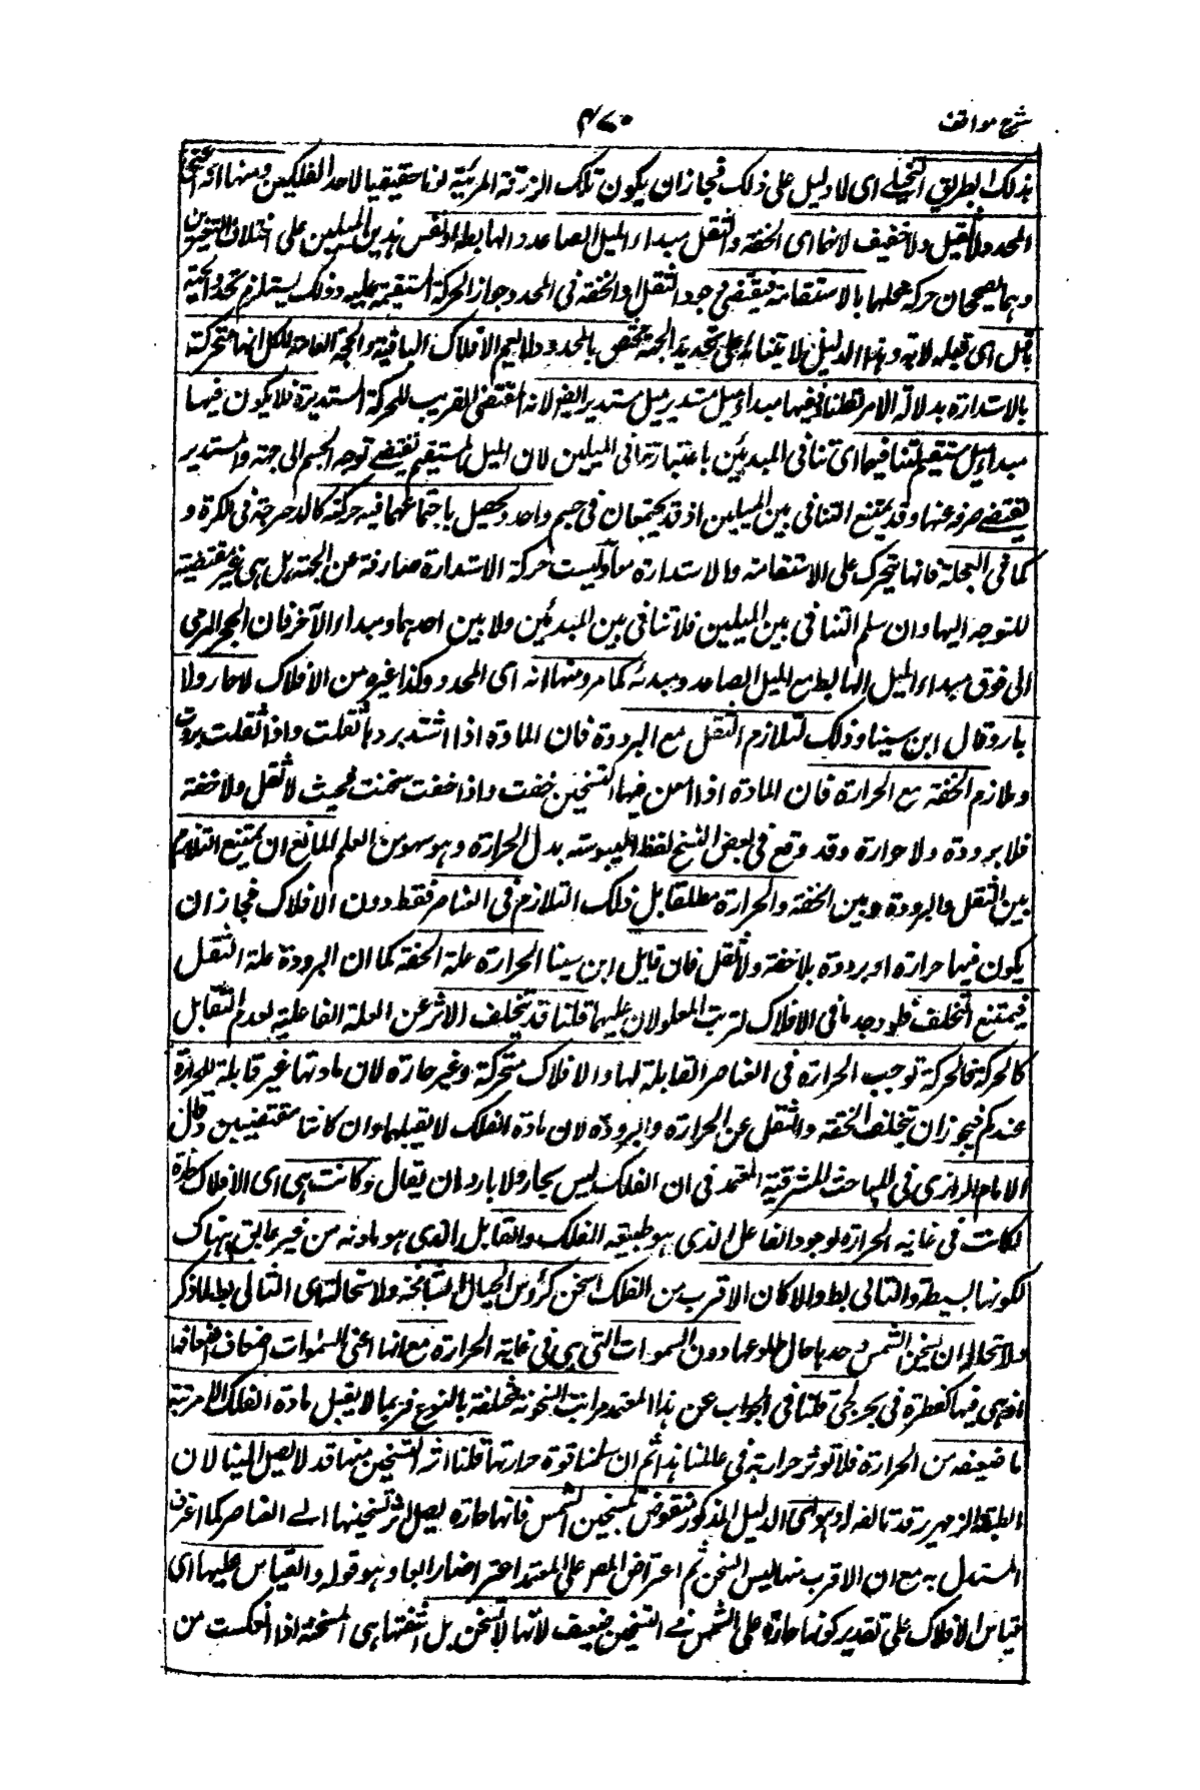 شرح مواقف
٤٧٠
بذلك الطريق التخيلي اى لا دليل على ذلك فجاز ان يكون تلك الزرقة المرئية لونا حقيقيا لاحد الفلكين ومنها انه اعنى
المحدد لا ثقيل ولا خفيف لانهما اى الخفة والثقل مبداء الميل الصاعد والهابط او نفس هذين الميلين على اختلاف التفسيرين
وهما يصححان حركة محلهما بالاستقامة فيقتضى وجود الثقل او الخفة فى المحدد جواز الحركة المستقيمة عليه وذلك يستلزم تحدد الجهة
قبل اى قبله لا به وهذا الدليل لابتنائه على تحديد الجهة مختص بالمحدد ولا يعم الافلاك الباقية والحجة العامة للكل انها متحركة
بالاستدارة بدلالة الارصاد ففيها مبداء ميل مستدير ميل مستدير ايضا لانه المقتضى القريب للحركة المستديرة فلا يكون فيها
مبداء ميل مستقيم لتنافيهما اى تنافى المبدئين باعتبار تنافى الميلين لان الميل المستقيم يقتضى توجه الجسم الى جهة والمستدير
يقتضى صرفه عنها وقد يمنع التنافى بين الميلين اذ قد يجتمعان فى جسم واحد ويحصل باجتماعهما فيه حركة كالدحرجة فى الكرة و
كما فى العجلة فانها تتحرك على الاستقامة والاستدارة معا وليست حركة الاستدارة صارفة عن الجهة بل هى غير مقتضية
للتوجه اليها وان سلم التنافى بين الميلين فلا تنافى بين المبدئين ولا بين احدهما ومبداء الآخر فان الحجر المرمى
الى فوق مبداء الميل الهابط مع الميل الصاعد ومبدئه كما مر ومنها انه اى المحدد وكذا غيره من الافلاك لا حار ولا
بارد قال ابن سينا وذلك لتلازم الثقل مع البرودة فان المادة اذا اشتد بردها ثقلت واذا ثقلت بردت
وتلازم الخفة مع الحرارة فان المادة اذا امعن فيها التسخين خفت واذا خفت سخنت فحيث لا ثقل ولا خفة
فلا برودة ولا حرارة وقد وقع فى بعض النسخ لفظ اليبوسة بدل الحرارة وهو سهو من القلم للمانع ان يمنع التلازم
بين الثقل والبرودة وبين الخفة والحرارة مطلقا بل ذلك التلازم فى العناصر فقط دون الافلاك فجاز ان
يكون فيها حرارة او برودة بلا خفة ولا ثقل فان قيل ابن سينا الحرارة علة الخفة كما ان البرودة علة الثقل
فيمتنع التخلف فلو وجدتا فى الافلاك لترتب المعلولان عليهما قلنا قد يتخلف الاثر عن العلة الفاعلية لعدم القابل
كالحركة فالحركة توجب الحرارة فى العناصر القابلة لها والافلاك متحركة وغير حارة لان مادتها غير قابلة للحرارة
عندكم فيجوز ان يتخلف الخفة والثقل عن الحرارة والبرودة لان مادة الفلك لا تقبلهما وان كانتا مقتضيتين وقال
الامام الرازى فى المباحث المشرقية المعتمد فى ان الفلك ليس بحار ولا بارد ان يقال لو كانت هى اى الافلاك حارة
لكانت فى غاية الحرارة لوجود الفاعل الذى هو طبيعة الفلك والقابل الذى هو مادته من غير عايق هناك
لكونها بسيطة والتالى بط والا كان الاقرب من الفلك اسخن كرؤس الجبال الشامخة ولاستحالته اى التالى بط لما ذكر
ولاستحالة ان يسخن الشمس وحدها حال طلوعها دون السموات التى هى فى غاية الحرارة مع انها اعنى السموات اضعاف اضعافها
اذ هى فيها كقطرة فى بحر لجى قلنا فى الجواب عن هذا المعتمد مراتب السخونة مختلفة بالنوع فربما لا يقبل مادة الفلك الا مرتبة
ما ضعيفة من الحرارة فلا تؤثر حرارته فى عالمنا هذا ثم ان سلمنا قوة حرارتها قلنا اثر التسخين منها قد لا يصل الينا لان
الطبقة الزمهريرة تقاومه الدليل المذكور منقوض بتسخين الشمس فانها حارة يصل اثر تسخينها الى العناصر كما اعترف
المستدل به مع ان الاقرب منها ليس اسخن ثم اعترض المص على المعتمد اعتراضا رابعا وهو قوله والقياس عليها اى
قياس الافلاك على تقدير كونها حارة على الشمس فى التسخين ضعيف لانها لا تسخن بل اشعتها هى المسخنة اذا انعكست من